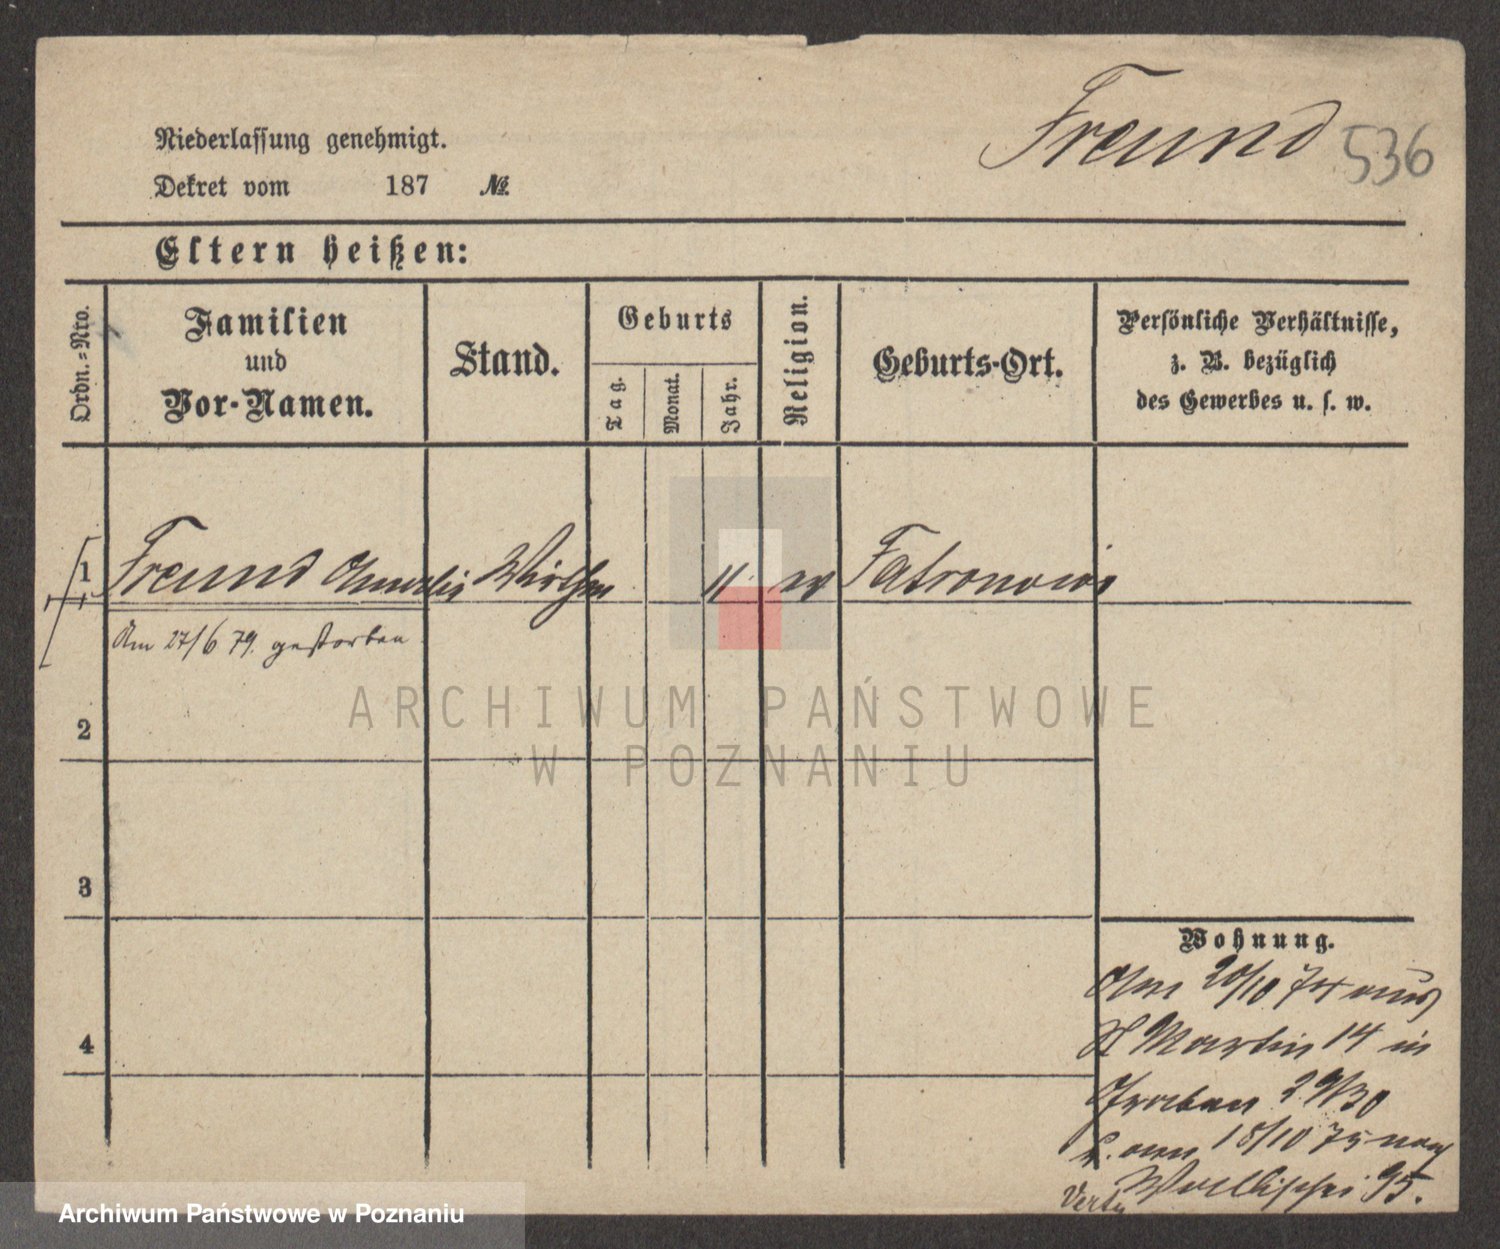 Freund 536
Niederlassung genehmigt.
Dekret vom 187 №
Eltern heißen:
Ordn.=Nro.
Familien
und
Vor-Namen.
Stand.
Geburts
Tag.
Monat.
Jahr.
Religion.
Geburts-Ort.
Persönliche Verhältnisse,
z. B. bezüglich
des Gewerbes u. s. w.
1 Freund 11
Am 27/6 79. gestorben
2
3
4
Wohnung.
Am 20/10 74 aus
St Martin 14 in
Graben 29/30
am 18/10 75 nach
Wallischei 95.
ARCHIWUM PAŃSTWOWE
W POZNANIU
Archiwum Państwowe w Poznaniu